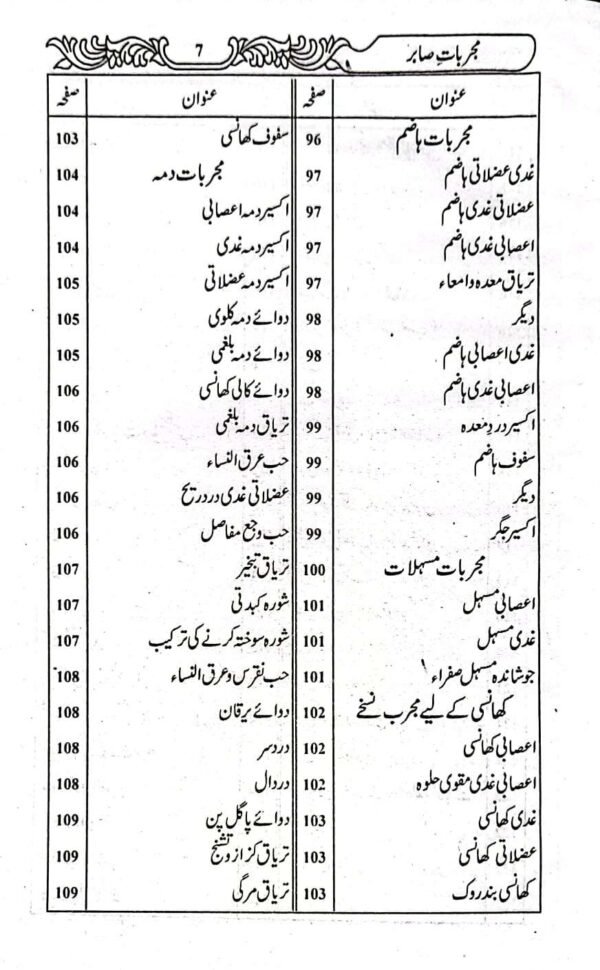 مجربات صابر
7
عنوان صفحہ
مجربات ہاضم 96
غدی عضلاتی ہاضم 97
عضلاتی غدی ہاضم 97
اعصابی غدی ہاضم 97
تریاق معدہ وامعاء 97
دیگر 98
غدی اعصابی ہاضم 98
اعصابی غدی ہاضم 98
اکسیر دردِ معدہ 99
سفوف ہاضم 99
دیگر 99
اکسیر جگر 99
مجربات مسہلات 100
اعصابی مسہل 101
غدی مسہل 101
جوشاندہ مسہل صفراء 101
کھانسی کے لیے مجرب نسخے 102
اعصابی کھانسی 102
اعصابی غدی مقوی حلوہ 102
غدی کھانسی 103
عضلاتی کھانسی 103
کھانسی بند روک 103
عنوان صفحہ
سفوف کھانسی 103
مجربات دمہ 104
اکسیر دمہ اعصابی 104
اکسیر دمہ غدی 104
اکسیر دمہ عضلاتی 105
دوائے دمہ کلوی 105
دوائے دمہ بلغمی 105
دوائے کالی کھانسی 106
تریاق دمہ بلغمی 106
حب عرق النساء 106
عضلاتی غدی درد ریح 106
حب وجع مفاصل 106
تریاق تبخیر 107
شورہ کبدتی 107
شورہ سوختہ کرنے کی ترکیب 107
حب نقرس و عرق النساء 108
دوائے یرقان 108
درد سر 108
درد دال 108
دوائے پاگل پن 109
تریاق کزاز و تشنج 109
تریاق مرگی 109